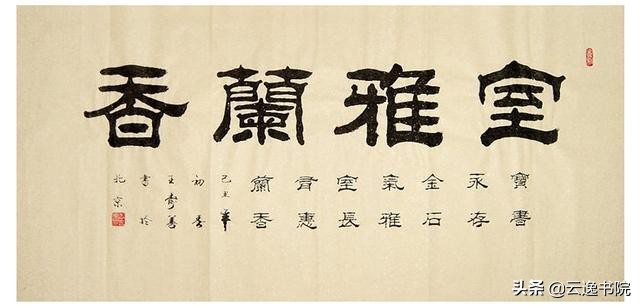 室雅蘭香
寶書
永存
金石
氣雅
室長
有惠
蘭香
己丑年
初春
王
書於
北京
头条 @云逸书院